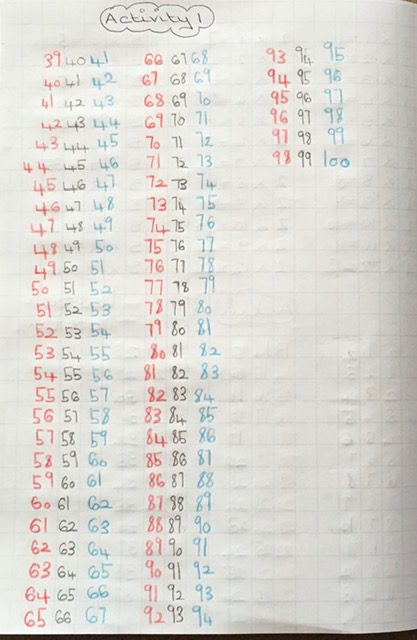 Activity 1
39 40 41
40 41 42
41 42 43
42 43 44
43 44 45
44 45 46
45 46 47
46 47 48
47 48 49
48 49 50
49 50 51
50 51 52
51 52 53
52 53 54
53 54 55
54 55 56
55 56 57
56 57 58
57 58 59
58 59 60
59 60 61
60 61 62
61 62 63
62 63 64
63 64 65
64 65 66
65 66 67
66 67 68
67 68 69
68 69 70
69 70 71
70 71 72
71 72 73
72 73 74
73 74 75
74 75 76
75 76 77
76 77 78
77 78 79
78 79 80
79 80 81
80 81 82
81 82 83
82 83 84
83 84 85
84 85 86
85 86 87
86 87 88
87 88 89
88 89 90
89 90 91
90 91 92
91 92 93
92 93 94
93 94 95
94 95 96
95 96 97
96 97 98
97 98 99
98 99 100